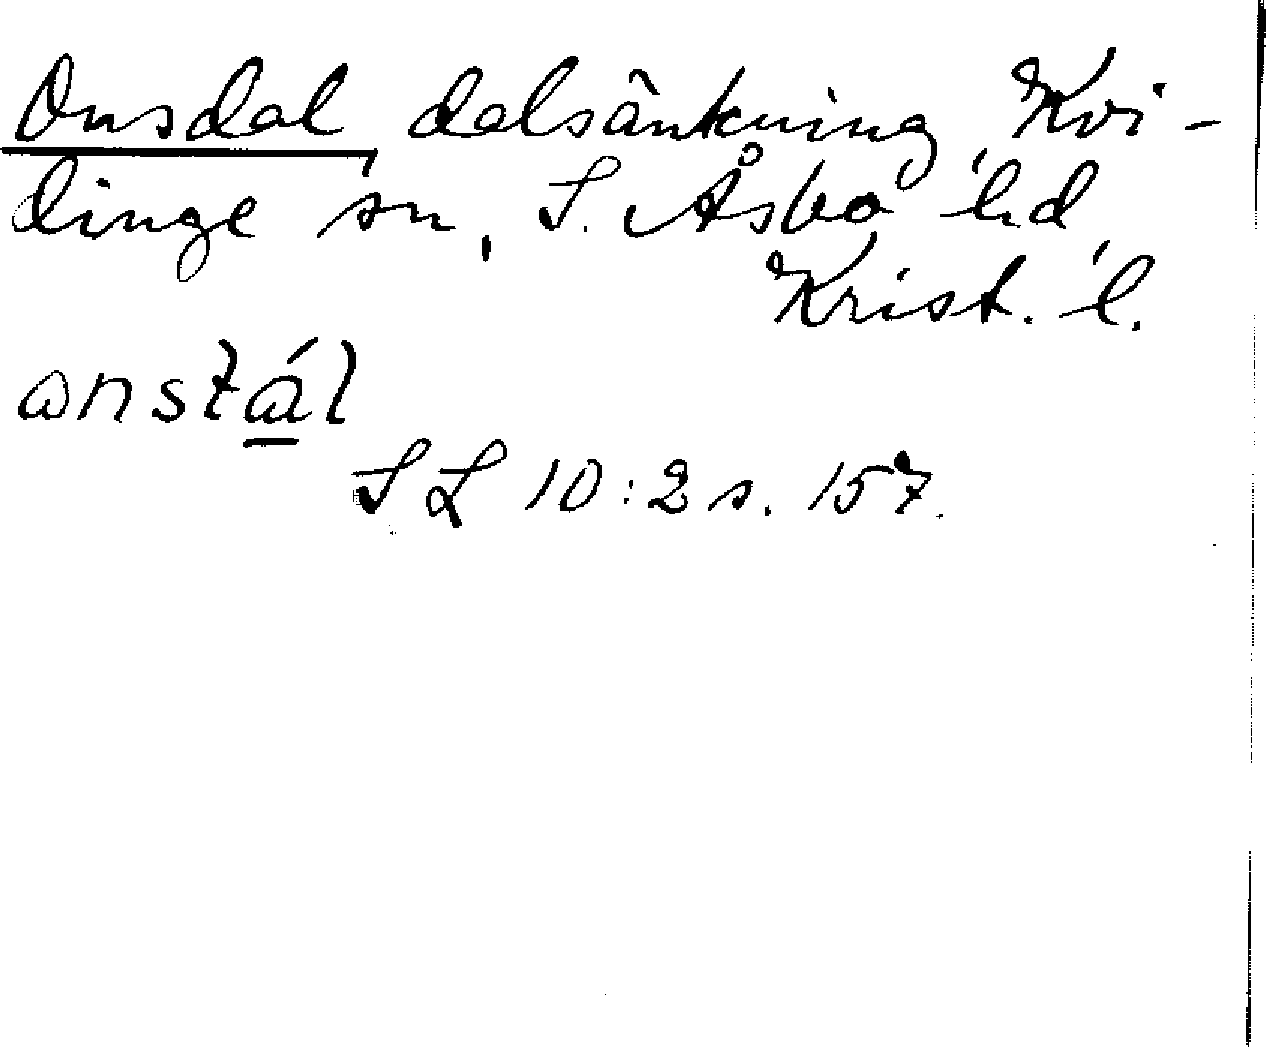 Onsdal, dalsänkning, Kvi-
dinge sn, S. Åsbo hd,
Krist. l.
anstál
SL 10:2 s. 157.